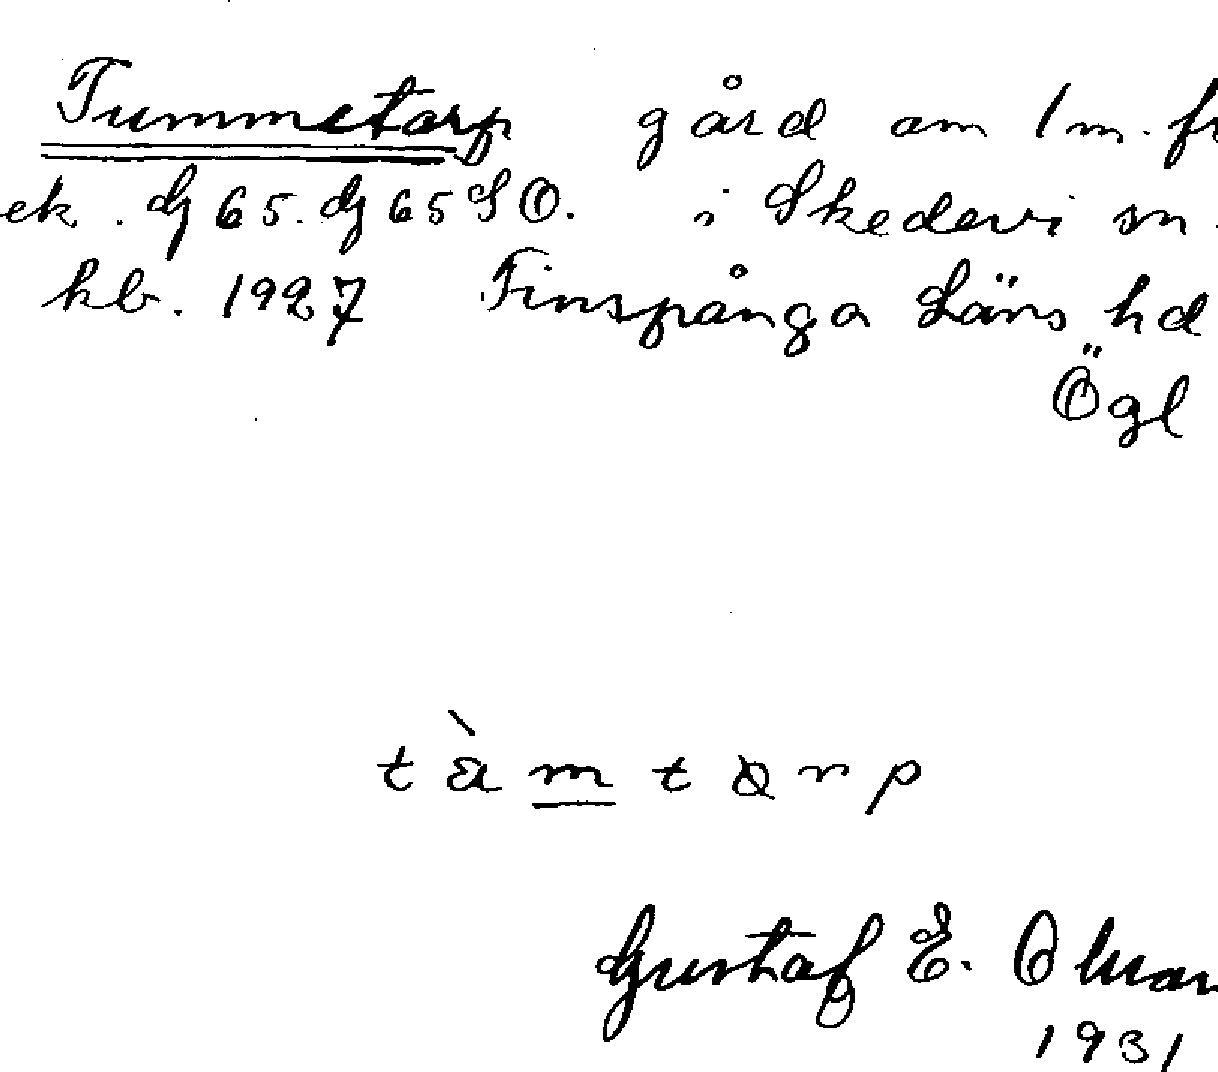 Tummetorp gård om 1 m. fr
ek. Gg 65. Gg 65 SO. i Skedevi sn.
kb. 1927 Finspånga Läns hd
Ögl
Gustaf E.
1931